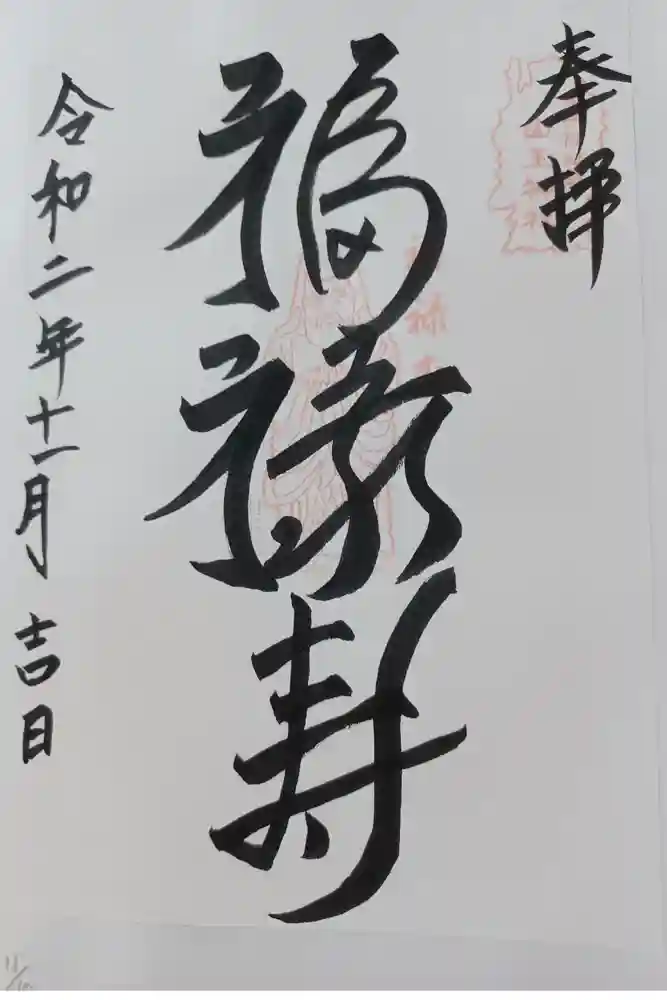 奉拝
福禄寿
令和二年十一月吉日